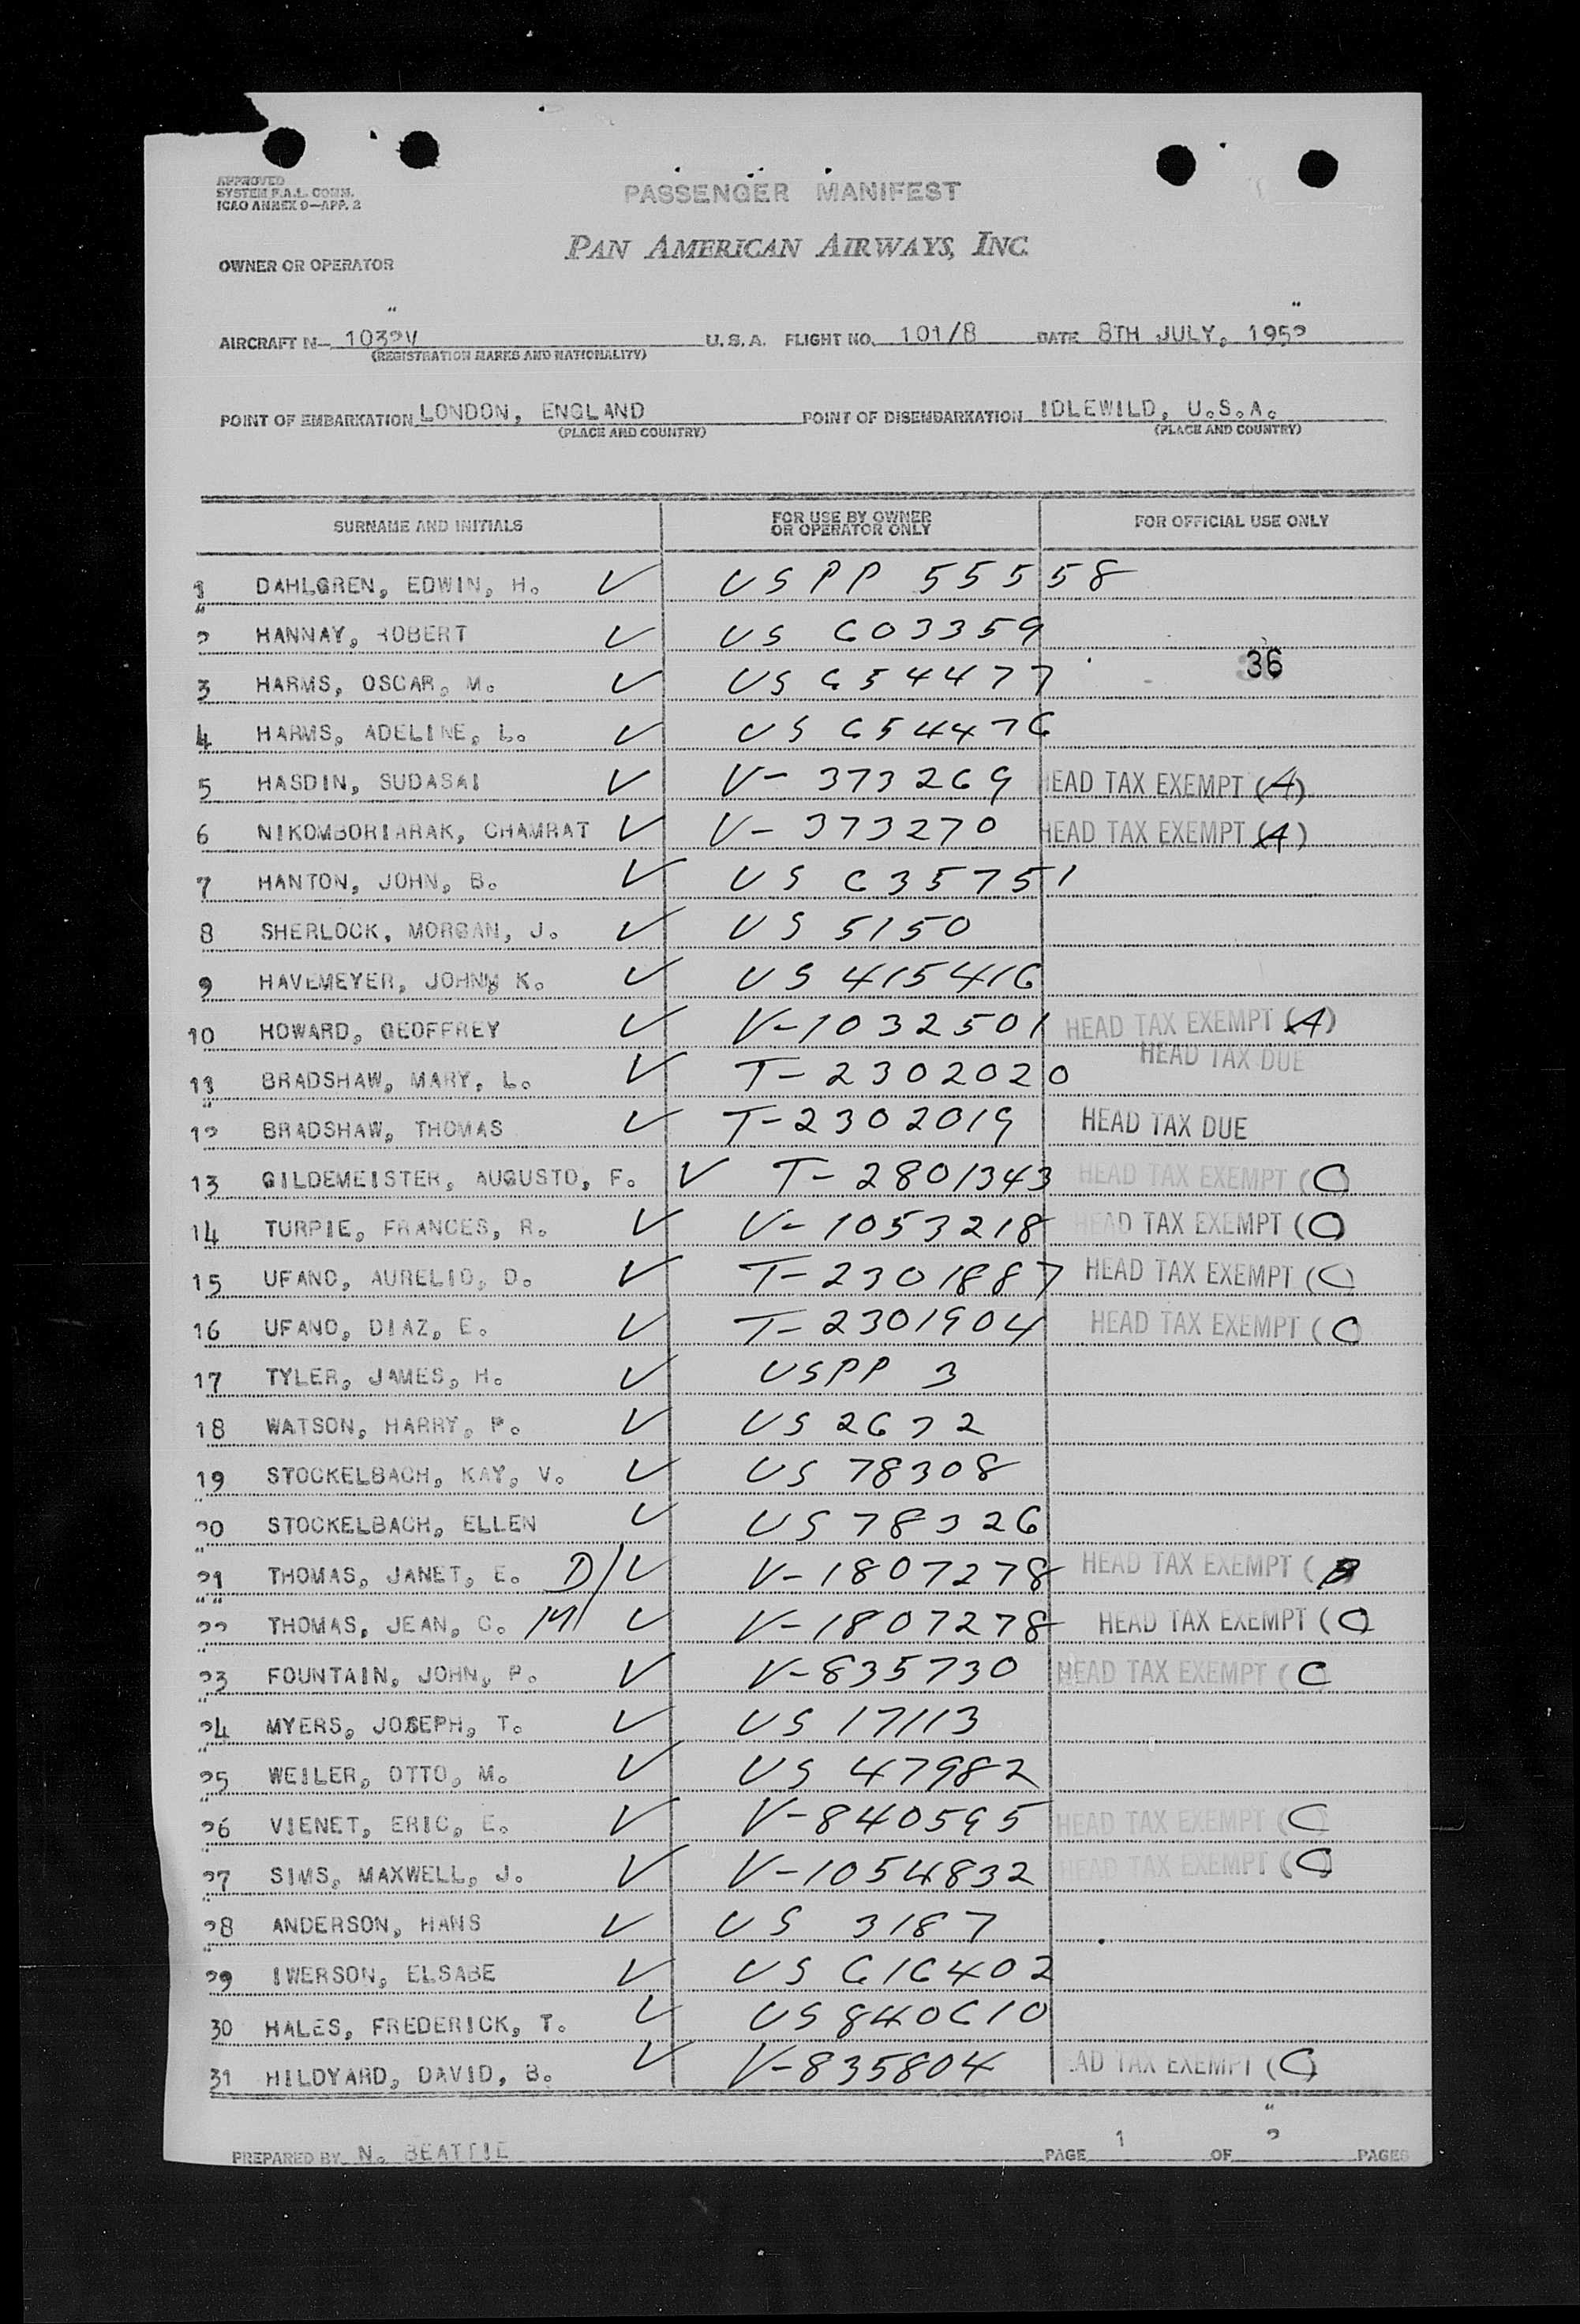 APPROVED
SYSTEM F.A.L. COMM.
ICAO ANNEX 9—APP. 2
PASSENGER MANIFEST
PAN AMERICAN AIRWAYS, INC.
OWNER OR OPERATOR
AIRCRAFT N— 1032V U.S.A. FLIGHT NO. 101/8 DATE 8TH JULY, 1952
(REGISTRATION MARKS AND NATIONALITY)
POINT OF EMBARKATION LONDON, ENGLAND POINT OF DISEMBARKATION IDLEWILD, U.S.A.
(PLACE AND COUNTRY) (PLACE AND COUNTRY)
SURNAME AND INITIALS FOR USE BY OWNER OR OPERATOR ONLY FOR OFFICIAL USE ONLY
1 DAHLGREN, EDWIN, H. V USPP 55558
2 HANNAY, ROBERT V US 603359
36
3 HARMS, OSCAR, M. V US 654477
4 HARMS, ADELINE, L. V US 654476
5 HASDIN, SUDASAI V V-373269 HEAD TAX EXEMPT (A)
6 NIKOMBORIARAK, CHAMRAT V V-373270 HEAD TAX EXEMPT (A)
7 HANTON, JOHN, B. V US 635751
8 SHERLOCK, MORGAN, J. V US 5150
9 HAVEMEYER, JOHN, K. V US 415416
10 HOWARD, GEOFFREY V V-1032501 HEAD TAX EXEMPT (A)
11 BRADSHAW, MARY, L. V T-2302020 HEAD TAX DUE
12 BRADSHAW, THOMAS V T-2302019 HEAD TAX DUE
13 GILDEMEISTER, AUGUSTO, F. V T-2801343 HEAD TAX EXEMPT (C)
14 TURPIE, FRANCES, R. V V-1053218 HEAD TAX EXEMPT (C)
15 UFANO, AURELIO, D. V T-2301887 HEAD TAX EXEMPT (C)
16 UFANO, DIAZ, E. V T-2301904 HEAD TAX EXEMPT (C)
17 TYLER, JAMES, H. V USPP 3
18 WATSON, HARRY, P. V US 2672
19 STOCKELBACH, KAY, V. V US 78308
20 STOCKELBACH, ELLEN V US 78326
21 THOMAS, JANET, E. D/ V V-1807278 HEAD TAX EXEMPT (B)
22 THOMAS, JEAN, C. M V V-1807278 HEAD TAX EXEMPT (C)
23 FOUNTAIN, JOHN, P. V V-835730 HEAD TAX EXEMPT (C
24 MYERS, JOSEPH, T. V US 17113
25 WEILER, OTTO, M. V US 47982
26 VIENET, ERIC, E. V V-840595 HEAD TAX EXEMPT (C)
27 SIMS, MAXWELL, J. V V-1054832 HEAD TAX EXEMPT (C)
28 ANDERSON, HANS V US 3187
29 IWERSON, ELSABE V US 616402
30 HALES, FREDERICK, T. V US 840610
31 HILDYARD, DAVID, B. V V-835804 AD TAX EXEMPT (C)
PREPARED BY N. BEATTIE PAGE 1 OF 2 PAGES